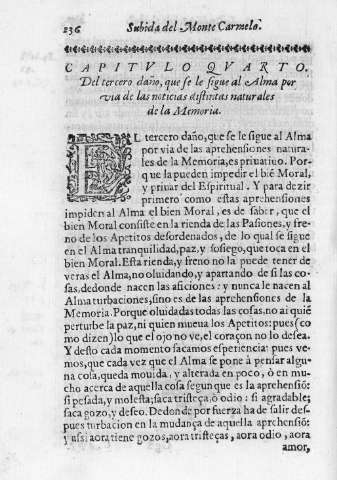 236 Subida del Monte Carmelo.
CAPITVLO QVARTO.
Del tercero daño, que se le sigue al Alma por
via de las noticias distintas naturales
de la Memoria.
EL tercero daño, que se le sigue al Alma
por via de las aprehensiones natura-
les de la Memoria, es priuatiuo. Por-
que la pueden impedir el biẽ Moral,
y priuar del Espiritual. Y para dezir
primero como estas aprehensiones
impiden al Alma el bien Moral, es de saber, que el
bien Moral consiste en la rienda de las Pasiones, y fre-
no de los Apetitos desordenados, de lo qual se sigue
en el Alma tranquilidad, paz, y sosiego, que toca en el
bien Moral. Esta rienda, y freno no la puede tener de
veras el Alma, no oluidando, y apartando de si las co-
sas, dedonde nacen las aficiones: y nunca le nacen al
Alma turbaciones, sino es de las aprehensiones de la
Memoria. Porque oluidadas todas las cosas, no ai quiẽ
perturbe la paz, ni quien mueua los Apetitos: pues (co
mo dizen) lo que el ojo no ve, el coraçon no lo desea.
Y desto cada momento sacamos esperiencia: pues ve-
mos, que cada vez que el Alma se pone à pensar algu-
na cosa, queda mouida, y alterada en poco, ò en mu-
cho acerca de aquella cosa segun que es la aprehensiõ:
si pesada, y molesta; saca tristeça, ò odio: si agradable;
saca gozo, y deseo. Dedonde por fuerza ha de salir des-
pues turbacion en la mudança de aquella aprehensiõ:
y assi aora tiene gozos, aora tristeças, aora odio, aora
amor,